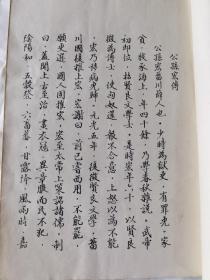 公孫宏傳
公孫宏菑川薛人也少時為獄吏有罪免家
貧牧豕海上年四十餘乃學春秋雜說武帝
初即位招賢良文學士是時宏年六十以賢良
徵為博士使匈奴還報不合意上怒以為不能
宏乃移病免歸元光五年復徵賢良文學菑
川國復推上宏宏謝曰前已嘗西用不能罷
願更選國人固推宏宏至太常上策詔諸儒制
曰蓋聞上古至治畫衣冠異章服而民不犯
陰陽和五穀登六畜蕃甘露降風雨時嘉